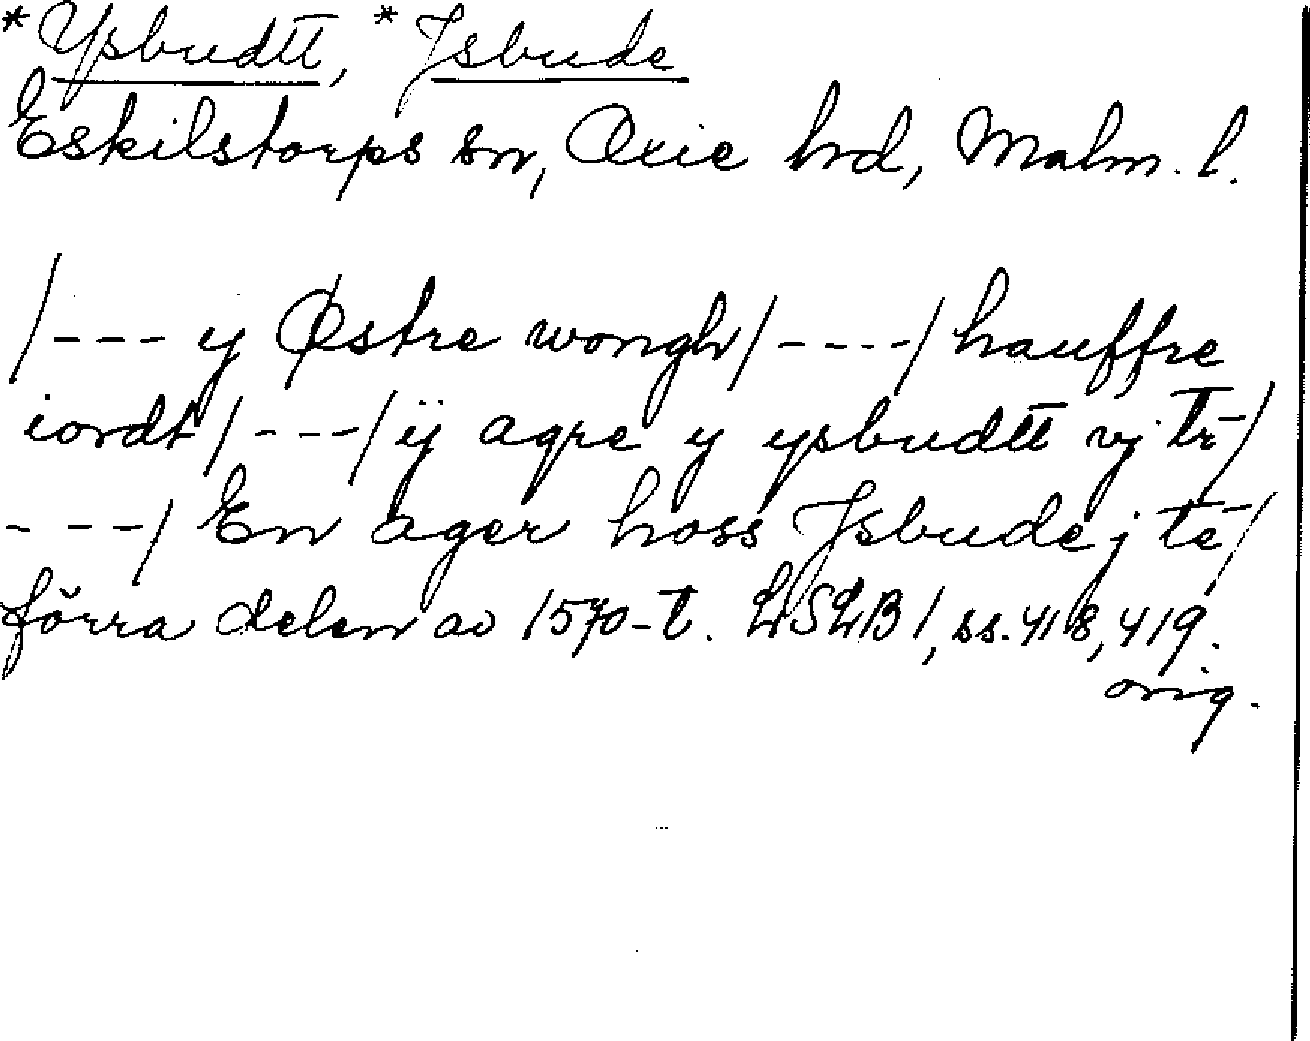 *Ysbudtt, *Jsbude
Eskilstorps sn, Oxie hd, Malm. l.
/--- y Østre wongh/----/hauffre
iordt/---/ÿ agre y ysbudtt vj tr-/
---/ En ager hoss Jsbude j te/
förra delen av 1570-t. LSLB 1, ss. 418, 419.
orig.